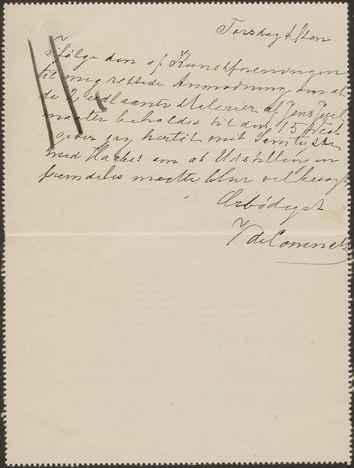 Torsdag Aften
Ifølge den af Kunstforeningen
til mig rettede Anmodning om at
de 2 udlaante Malerier af Jens Juel
maatte beholdes til den 15
giver jeg hertil mit Samtykke
med Haabet om at Udstillingen
fremdeles maatte blive vel besøgt
Ærbødigst